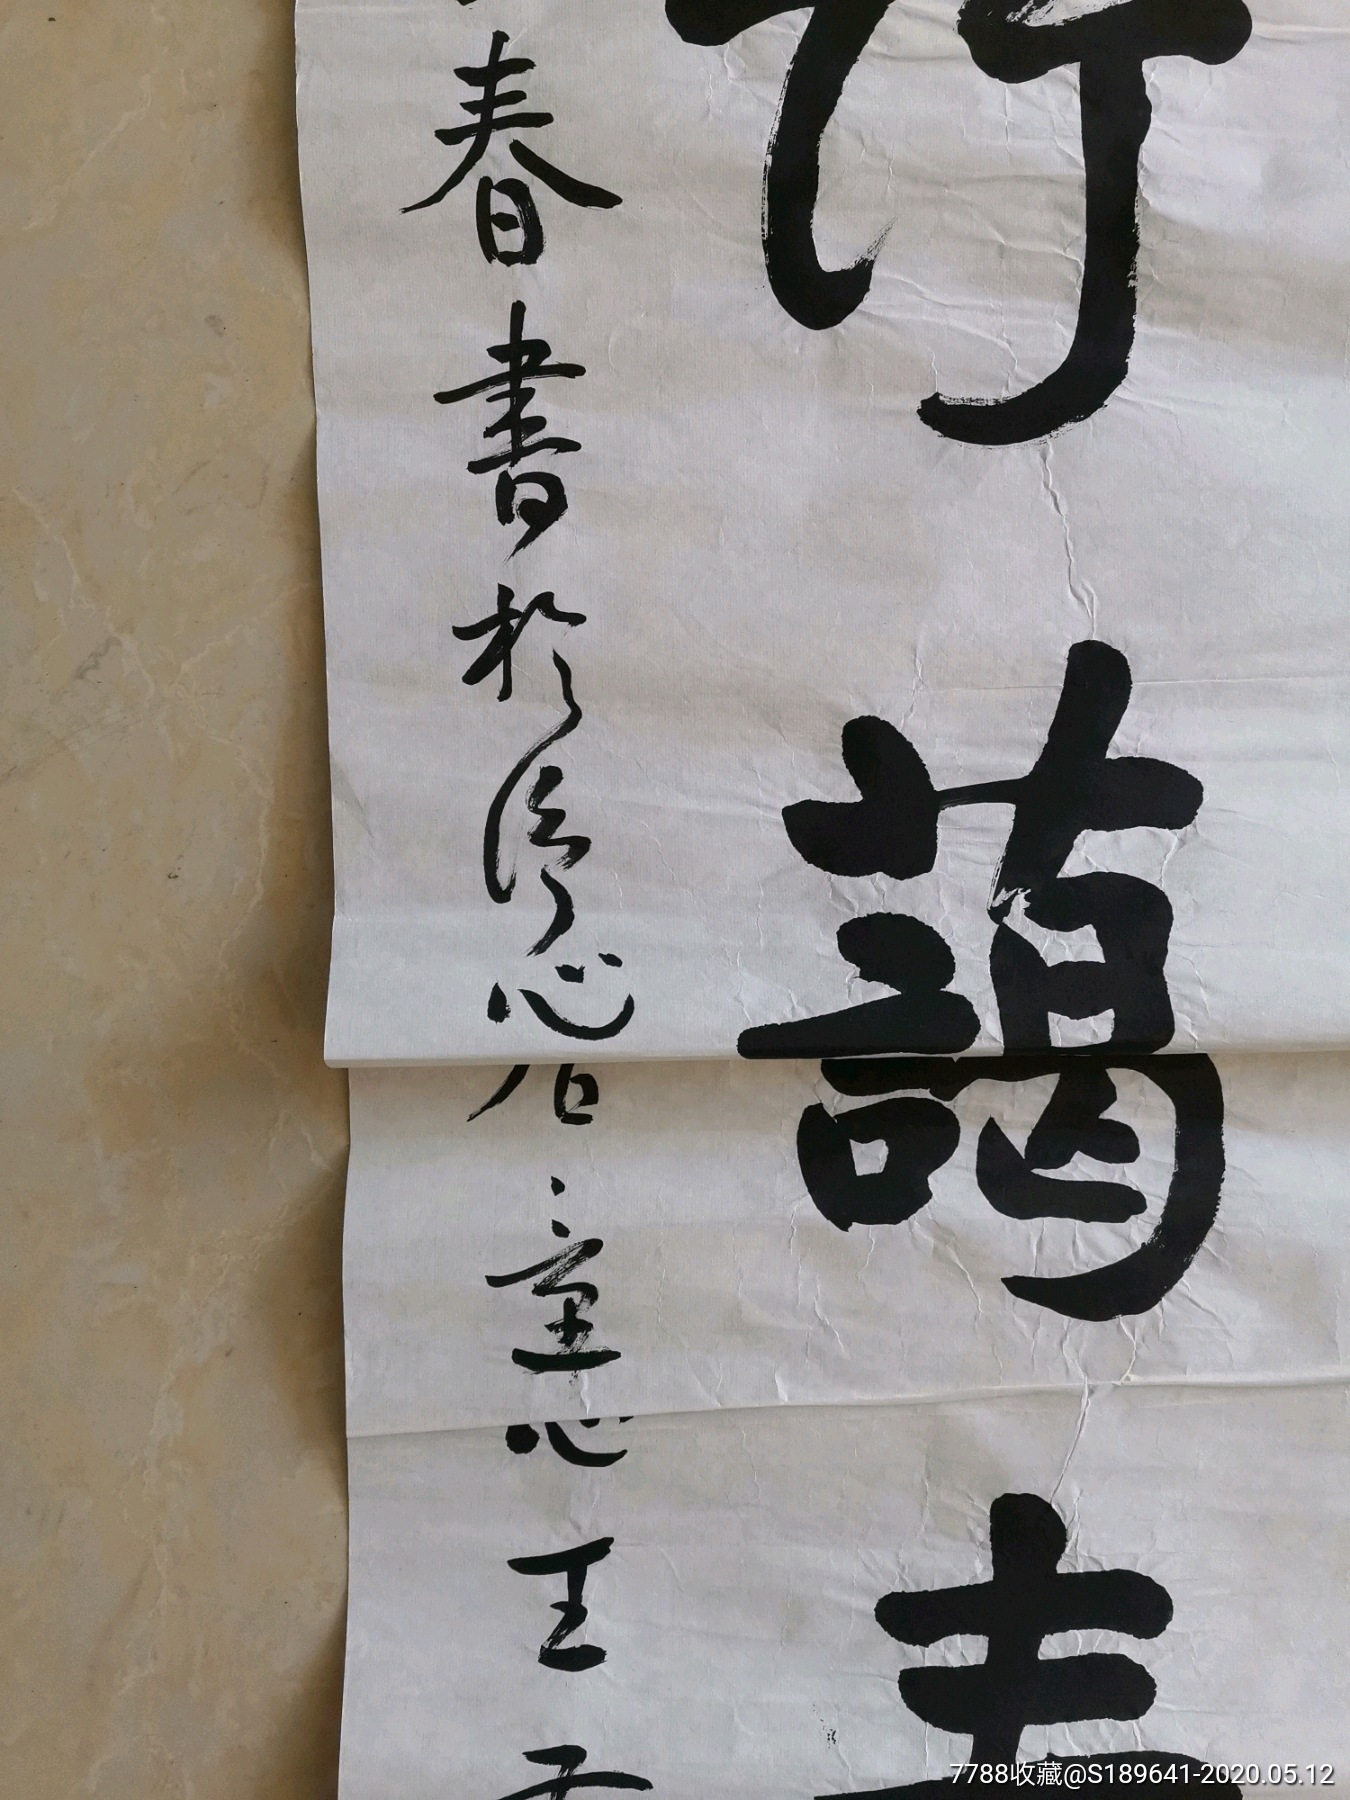 行藹春
春書於清心居童心王子
7788收藏@S189641-2020.05.12